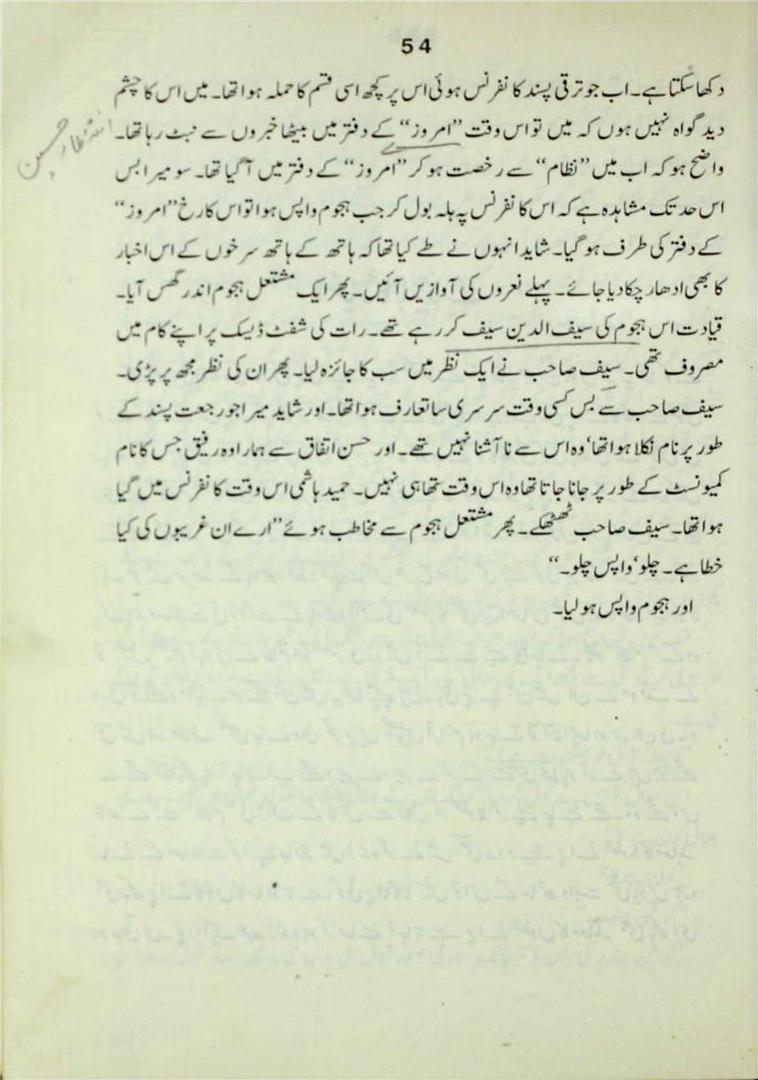 54
دکھا سکتا ہے۔ اب جو ترقی پسند کانفرنس ہوئی اس پر کچھ اسی قسم کا حملہ ہوا تھا۔ میں اس کا چشم
دید گواہ نہیں ہوں کہ میں تو اس وقت ”امروز“ کے دفتر میں بیٹھا خبروں سے نبٹ رہا تھا۔
انتظار حسین
واضح ہو کہ اب میں ”نظام“ سے رخصت ہو کر ”امروز“ کے دفتر میں آ گیا تھا۔ سو میرا بس
اس حد تک مشاہدہ ہے کہ اس کانفرنس پہ ہلہ بول کر جب ہجوم واپس ہوا تو اس کا رخ ”امروز“
کے دفتر کی طرف ہو گیا۔ شاید انہوں نے طے کیا تھا کہ ہاتھ کے ہاتھ سرخوں کے اس اخبار
کا بھی ادھار چکا دیا جائے۔ پہلے نعروں کی آوازیں آئیں۔ پھر ایک مشتعل ہجوم اندر گھس آیا۔
قیادت اس ہجوم کی سیف الدین سیف کر رہے تھے۔ رات کی شفٹ ڈیسک پر اپنے کام میں
مصروف تھی۔ سیف صاحب نے ایک نظر میں سب کا جائزہ لیا۔ پھر ان کی نظر مجھ پر پڑی۔
سیف صاحب سے بس کسی وقت سرسری سا تعارف ہوا تھا۔ اور شاید میرا جو رجعت پسند کے
طور پر نام نکلا ہوا تھا‘ وہ اس سے نا آشنا نہیں تھے۔ اور حسن اتفاق سے ہمارا وہ رفیق جس کا نام
کمیونسٹ کے طور پر جانا جاتا تھا وہ اس وقت تھا ہی نہیں۔ حمید ہاشمی اس وقت کانفرنس میں گیا
ہوا تھا۔ سیف صاحب ٹھٹھکے۔ پھر مشتعل ہجوم سے مخاطب ہوئے ”ارے ان غریبوں کی کیا
خطا ہے۔ چلو‘ واپس چلو۔“
اور ہجوم واپس ہو لیا۔